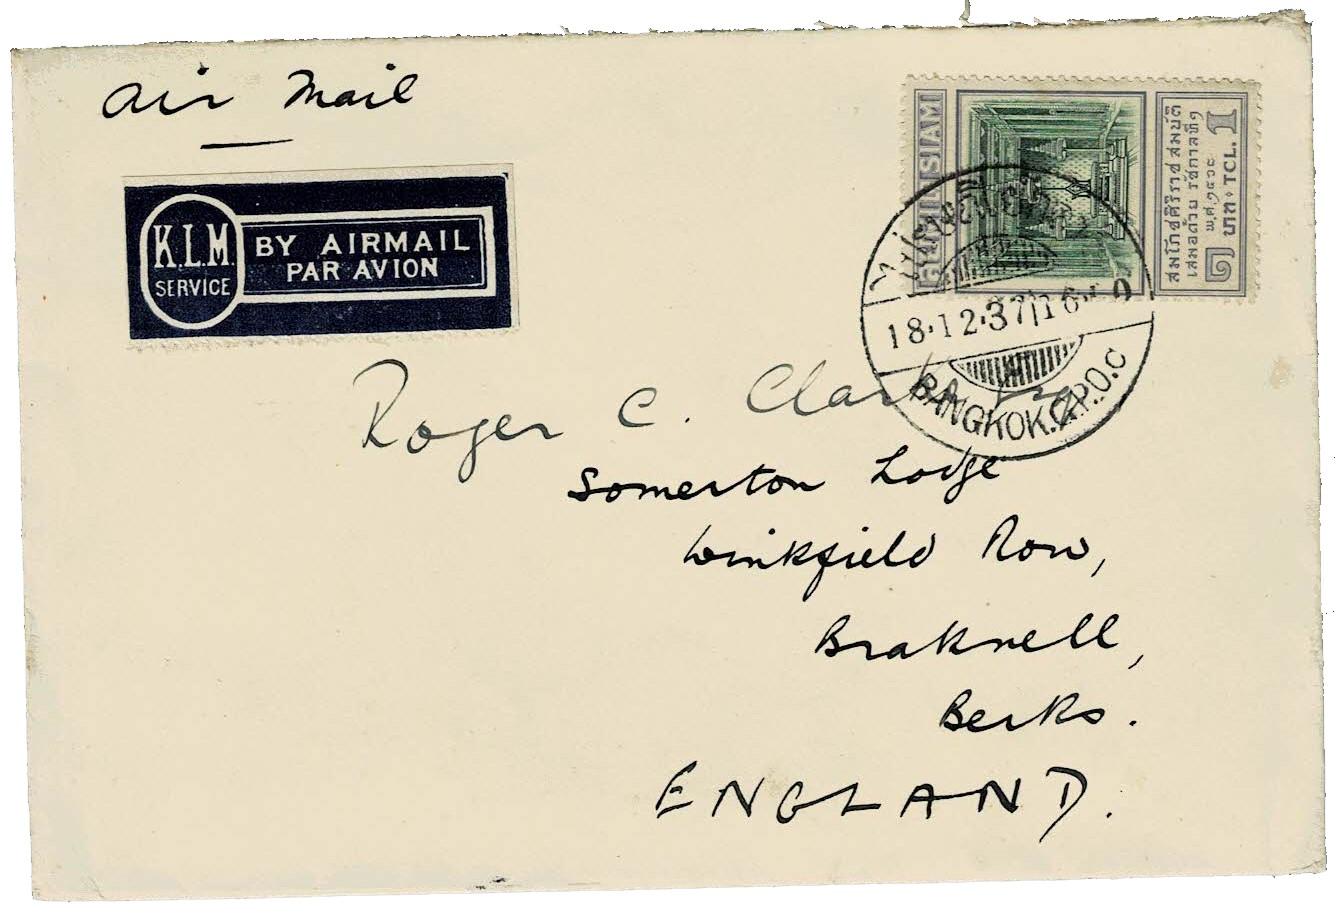 air Mail
K.L.M.
SERVICE
BY AIRMAIL
PAR AVION
SIAM
สมโภชศิริราชสมบัติ
เสมอด้วย รัชกาลที่๑
พ.ศ.๑๔๖๘
๑ บาท TCL. 1
18.12.37
BANGKOK.G.P.O.C
Roger C.
Somerton Lodge
Winkfield Row,
Braknell,
Berks.
ENGLAND.